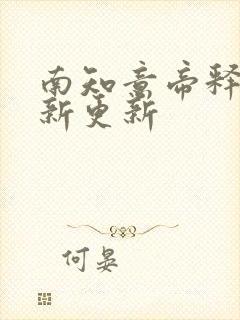 南知意帝释
新更新
何晏